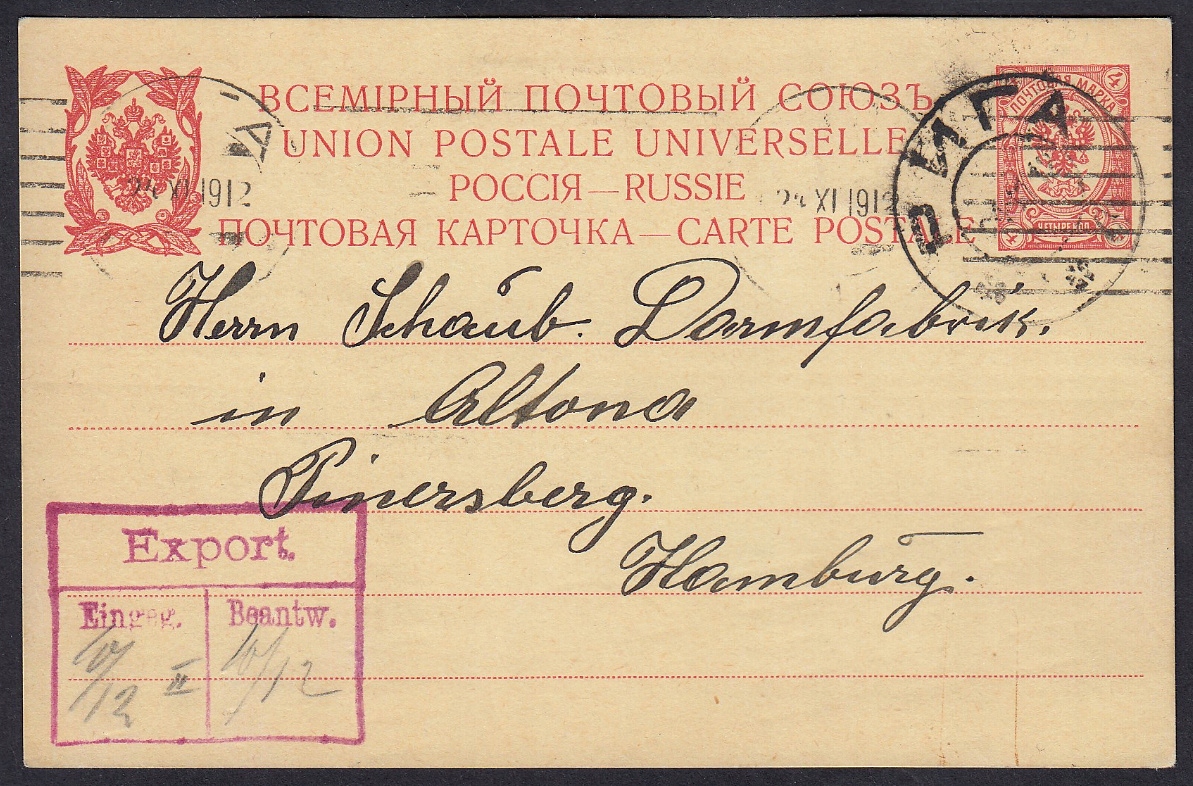 ВСЕМІРНЫЙ ПОЧТОВЫЙ СОЮЗЪ
UNION POSTALE UNIVERSELLE
РОССІЯ—RUSSIE
ПОЧТОВАЯ КАРТОЧКА—CARTE POSTALE
4 ПОЧТОВАЯ МАРКА 4
4 ЧЕТЫРЕ КОП. 4
РИГА
24 XI 1912
24 XI 1912
Herrn Schaub. Darmfabrik.
in Altona
Pinersberg.
Hamburg.
Export.
Eingeg. Beantw.
10/12 II 10/12